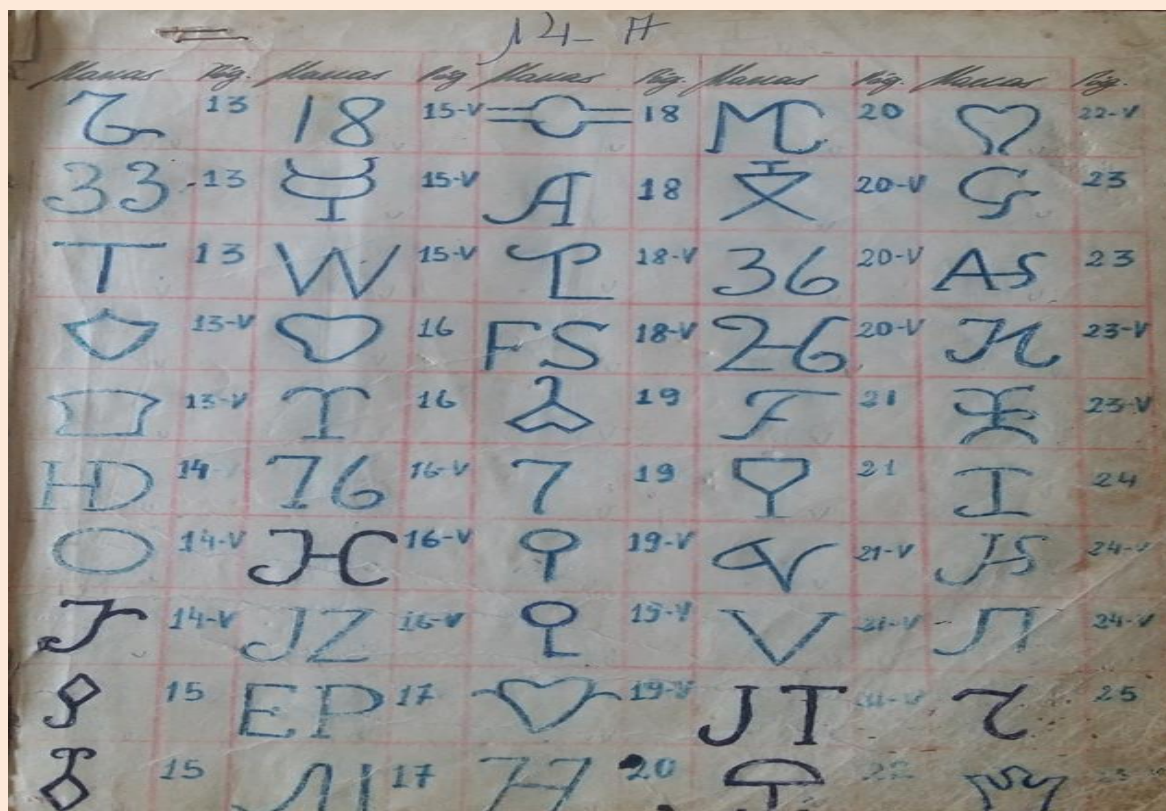 Marcas Pág. Marcas Pág. Marcas Pág. Marcas Pág. Marcas Pág.
13 18 15-V 18 MC 20 22-V
33 13 15-V A 18 20-V G 23
T 13 W 15-V 18-V 36 20-V AS 23
13-V 16 FS 18-V 26 20-V 23-V
13-V 16 19 F 21 23-V
HD 14 76 16-V 7 19 21 I 24
14-V JC 16-V 19-V 21-V JS 24-V
14-V JZ 16-V 19-V V 21-V 24-V
15 EP 17 19-V JT 21-V 25
15 17 20 22